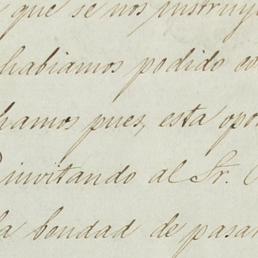 que se nos instruy
habiamos podido co
hamos pues, esta opo
invitando al Sr.
la bondad de pasar